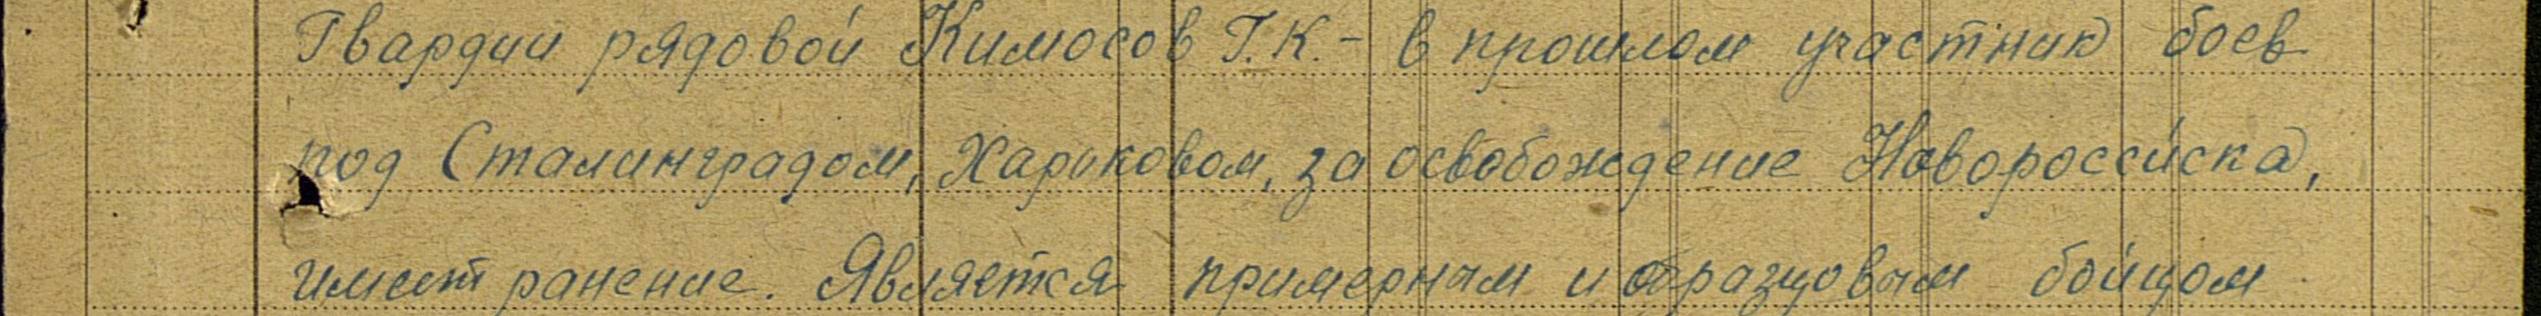 Гвардии рядовой Кимосов Г.К. - в прошлом участник боев
под Сталинградом, Харьковом, за освобождение Новороссийска,
имеет ранение. Является примерным и образцовым бойцом